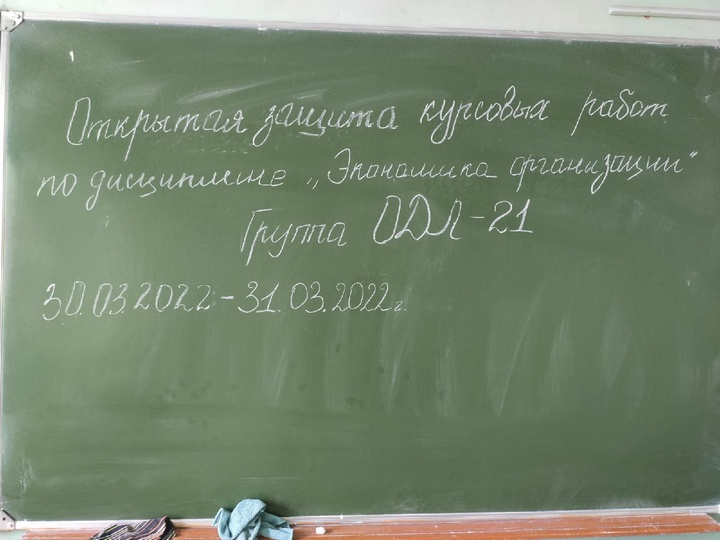 Открытая защита курсовых работ
по дисциплине „Экономика организации“
Группа ОДЛ-21
30.03.2022-31.03.2022г.